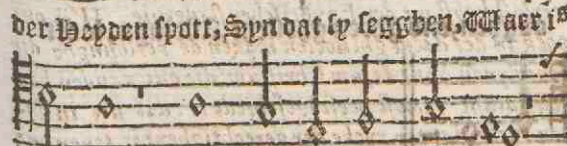 der Heyden spott, Syn dat sy segghen, Waer is